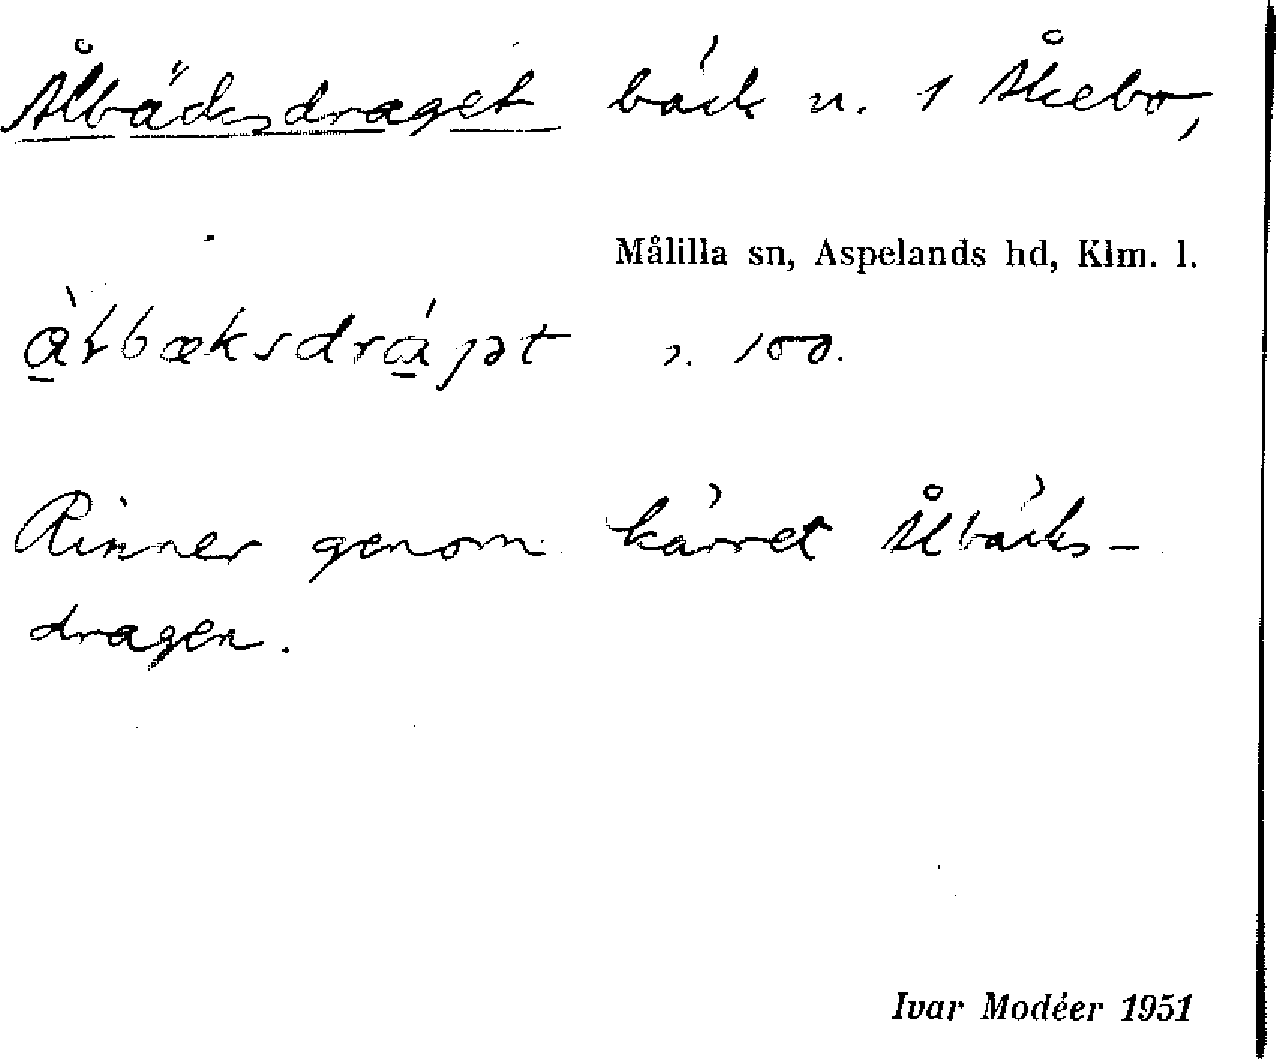 Ålbäcksdraget bäck n. 1 Åkebo,
Målilla sn, Aspelands hd, Klm. l.
Rinner genom kärret Ålbäcks-
dragen.
Ivar Modéer 1951